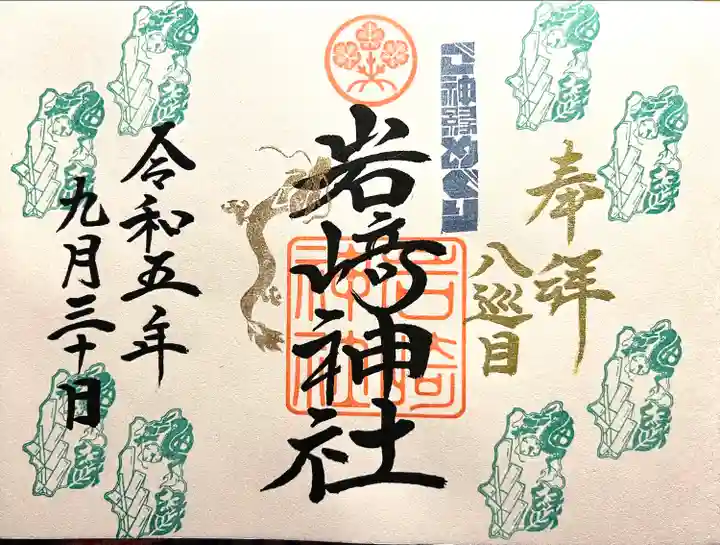 奉拝
八巡目
ご神縁めぐり
岩﨑神社
岩﨑神社
令和五年
九月三十日